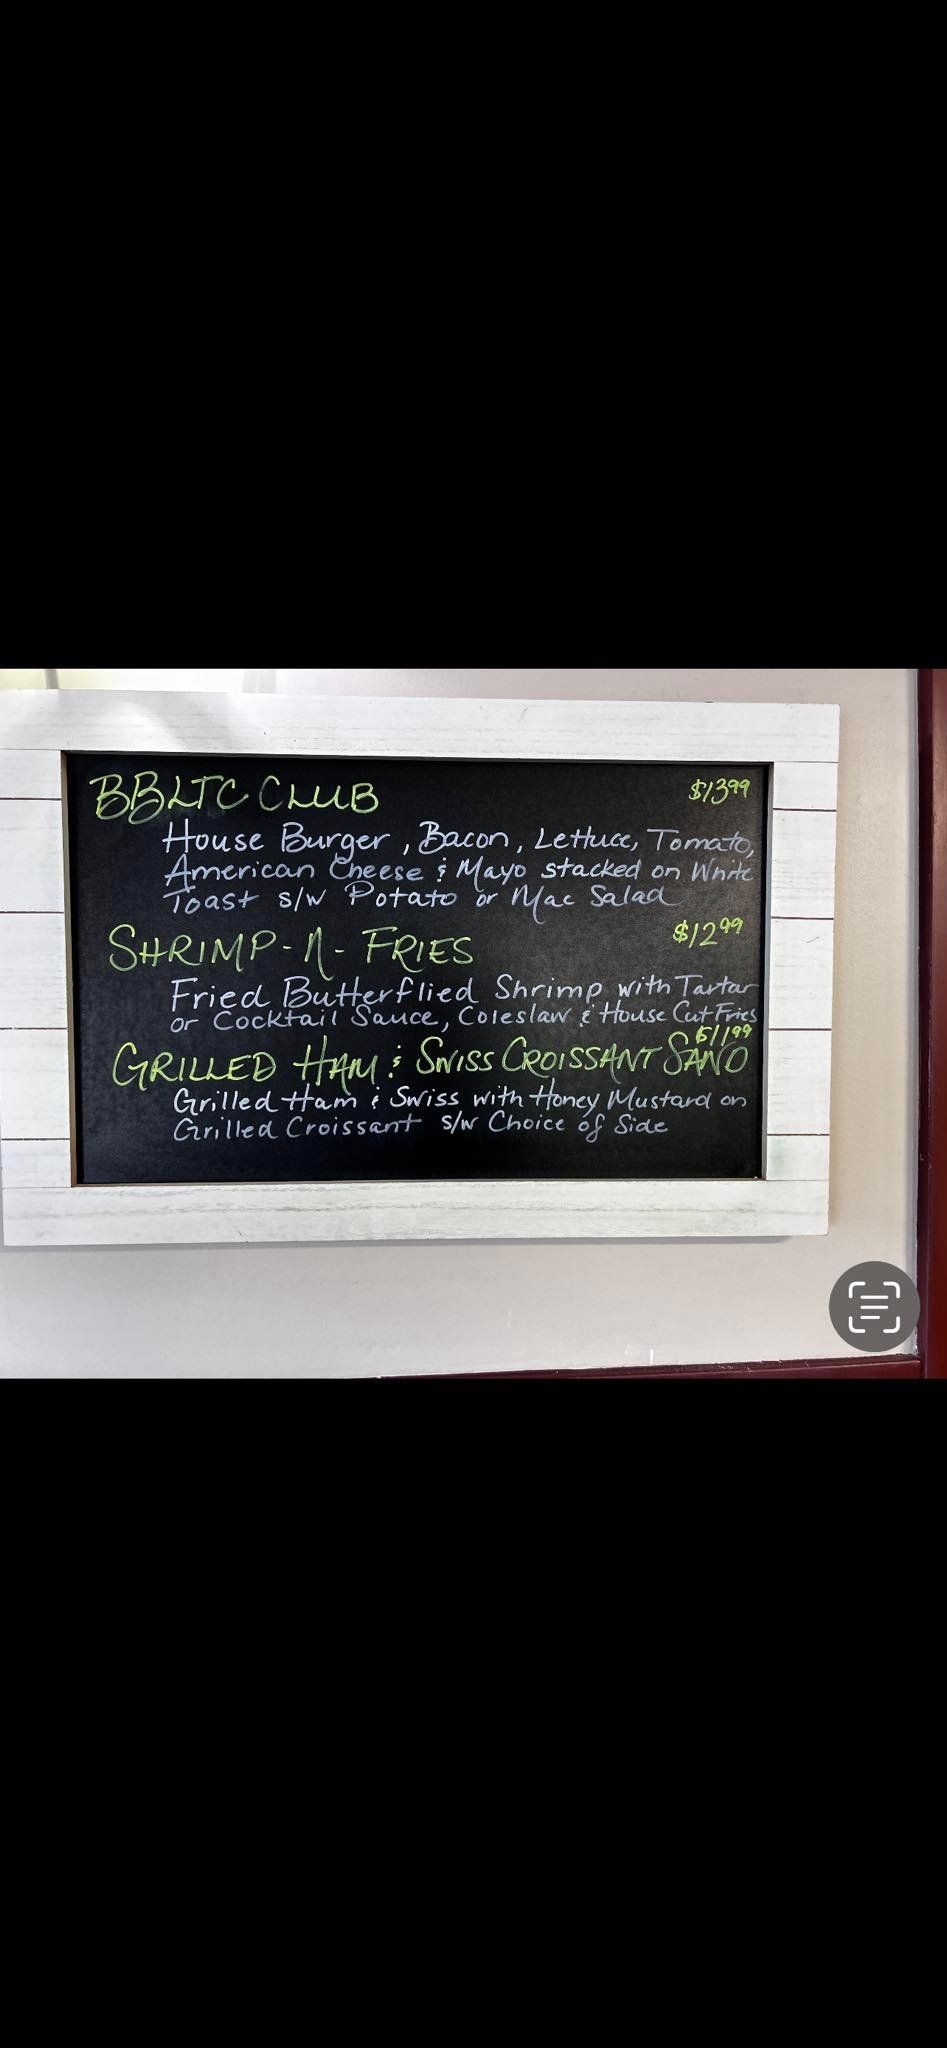 BBLTC CLUB $13.99
House Burger, Bacon, Lettuce, Tomato,
American Cheese & Mayo stacked on White
Toast s/w Potato or Mac Salad
SHRIMP-N-FRIES $12.99
Fried Butterflied Shrimp with Tartar
or Cocktail Sauce, Coleslaw & House Cut Fries
$11.99
GRILLED HAM & SWISS CROISSANT SAND
Grilled Ham & Swiss with Honey Mustard on
Grilled Croissant s/w Choice of Side